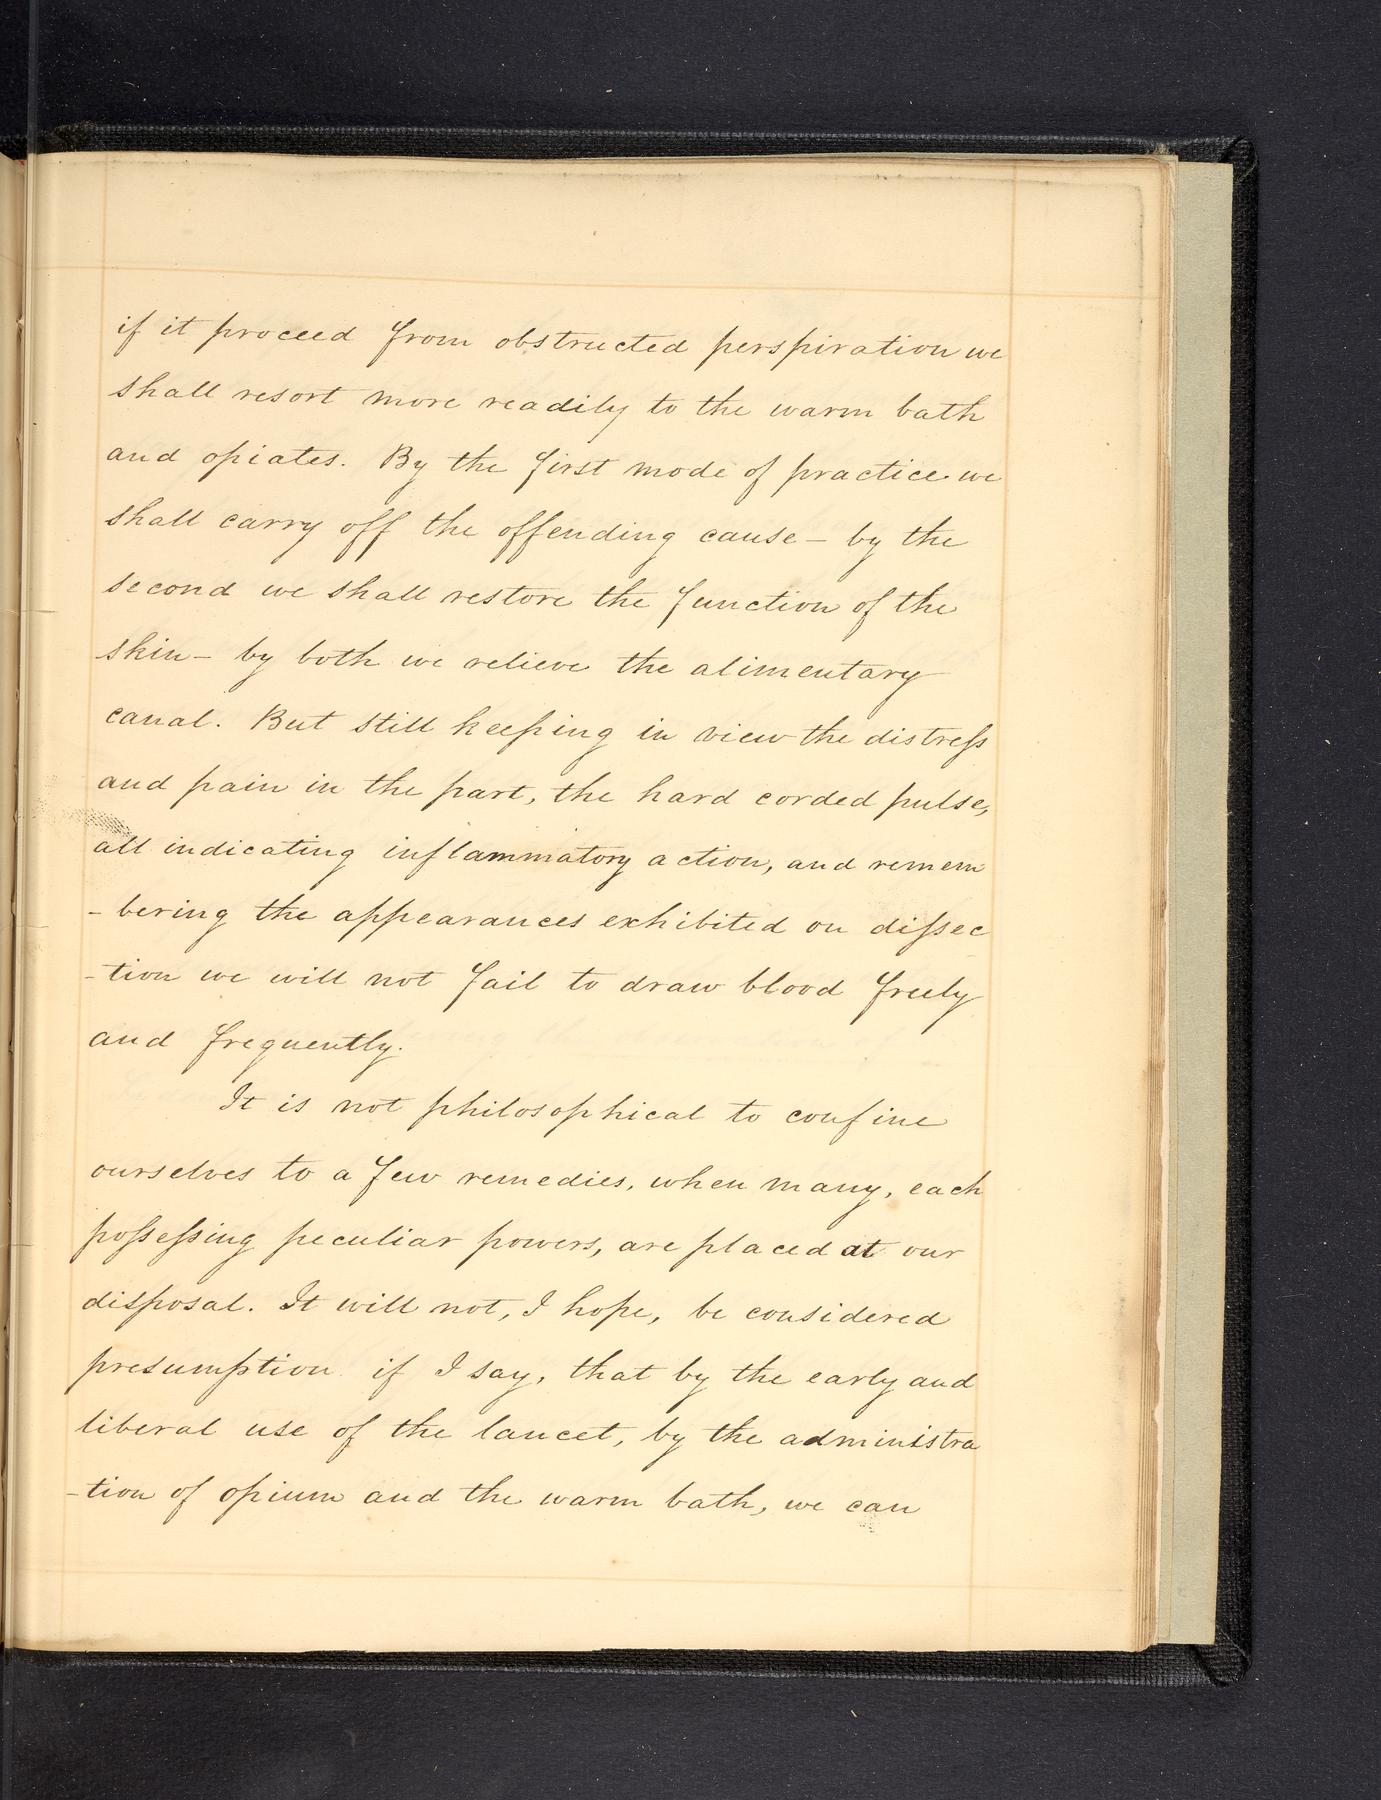 if it proceed from obstructed perspiration we
shall resort more readily to the warm bath
and opiates. By the first mode of practice we
shall carry off the offending cause – by the
second we shall restore the function of the
skin – by both we relieve the alimentary
canal. But still keeping in view the distreſs
and pain in the part, the hard corded pulse,
all indicating inflammatory action, and remem
- bering the appearances exhibited on diſsec
- tion we will not fail to draw blood freely
and frequently.
It is not philosophical to confine
ourselves to a few remedies, when many, each
poſseſsing peculiar powers, are placed at our
disposal. It will not, I hope, be considered
presumption if I say, that by the early and
liberal use of the lancet, by the administra
- tion of opium and the warm bath, we can